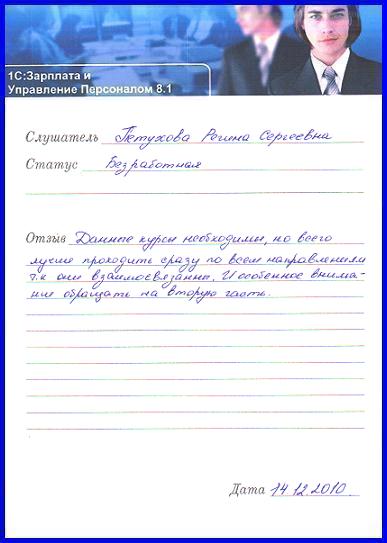 1С:Зарплата и
Управление Персоналом 8.1
Слушатель Петухова Регина Сергеевна
Статус Безработная
Отзыв Данные курсы необходимы, но всего
лучше проходить сразу по всем направлениям
т.к они взаимосвязанны. И особенное внима-
ние обращать на вторую часть.
Дата 14.12.2010.